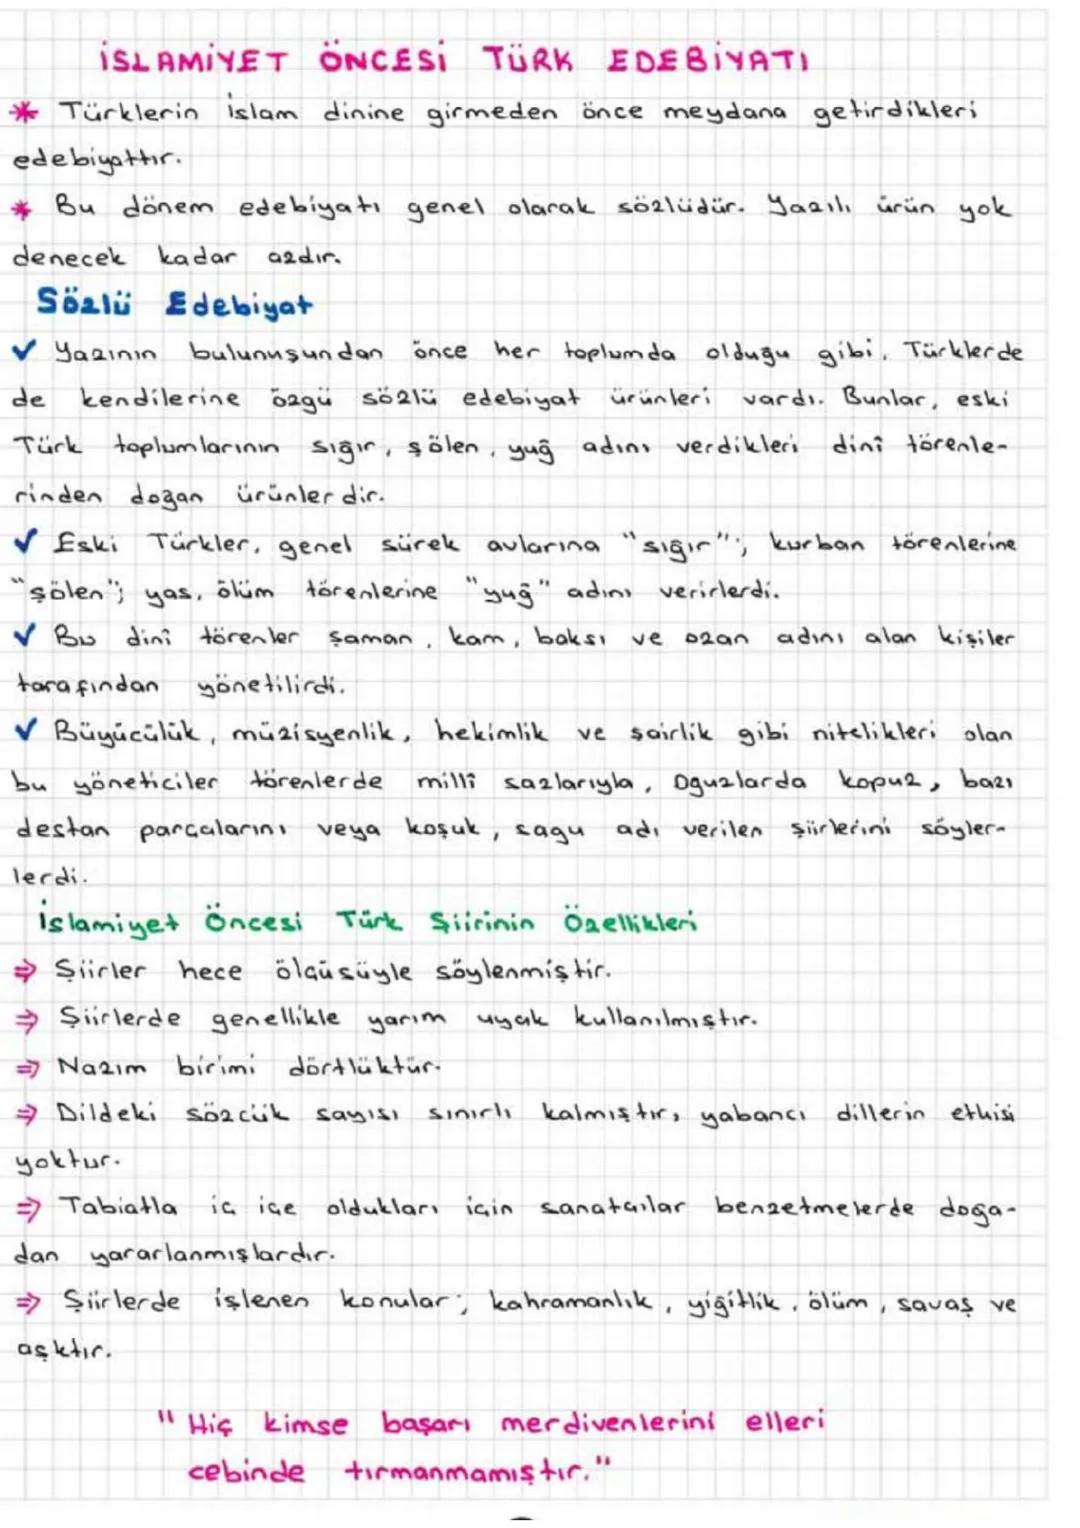 İSLAMİYET ÖNCESİ TÜRK EDEBİYATI
* Türklerin İslam dinine girmeden önce meydana getirdikleri
edebiyattır.
* Bu dönem edebiyatı genel olarak sözlüdür. Yazılı ürün yok
denecek kadar azdır.
Sözlü Edebiyat
✓ Yazının bulunuşundan önce her toplumda olduğu gibi, Türklerde
de kendilerine özgü sözlü edebiyat ürünleri vardı. Bunlar, eski
Türk toplumlarının sığır, şölen, yuğ adını verdikleri dinî törenle-
rinden doğan ürünlerdir.
✓ Eski Türkler, genel sürek avlarına "sığır"; kurban törenlerine
"şölen"; yas, ölüm törenlerine "yuğ" adını verirlerdi.
✓ Bu dinî törenler şaman, kam, baksı ve ozan adını alan kişiler
tarafından yönetilirdi.
✓ Büyücülük, müzisyenlik, hekimlik ve şairlik gibi nitelikleri olan
bu yöneticiler törenlerde millî sazlarıyla, Oğuzlarda kopuz, bazı
destan parçalarını veya koşuk, sagu adı verilen şiirlerini söyler-
lerdi.
İslamiyet Öncesi Türk Şiirinin Özellikleri
⇒ Şiirler hece ölçüsüyle söylenmiştir.
⇒ Şiirlerde genellikle yarım uyak kullanılmıştır.
⇒ Nazım birimi dörtlüktür.
⇒ Dildeki sözcük sayısı sınırlı kalmıştır, yabancı dillerin etkisi
yoktur.
⇒ Tabiatla iç içe oldukları için sanatçılar benzetmelerde doğa-
dan yararlanmışlardır.
⇒ Şiirlerde işlenen konular; kahramanlık, yiğitlik, ölüm, savaş ve
aşktır.
"Hiç kimse başarı merdivenlerini elleri
cebinde tırmanmamıştır."